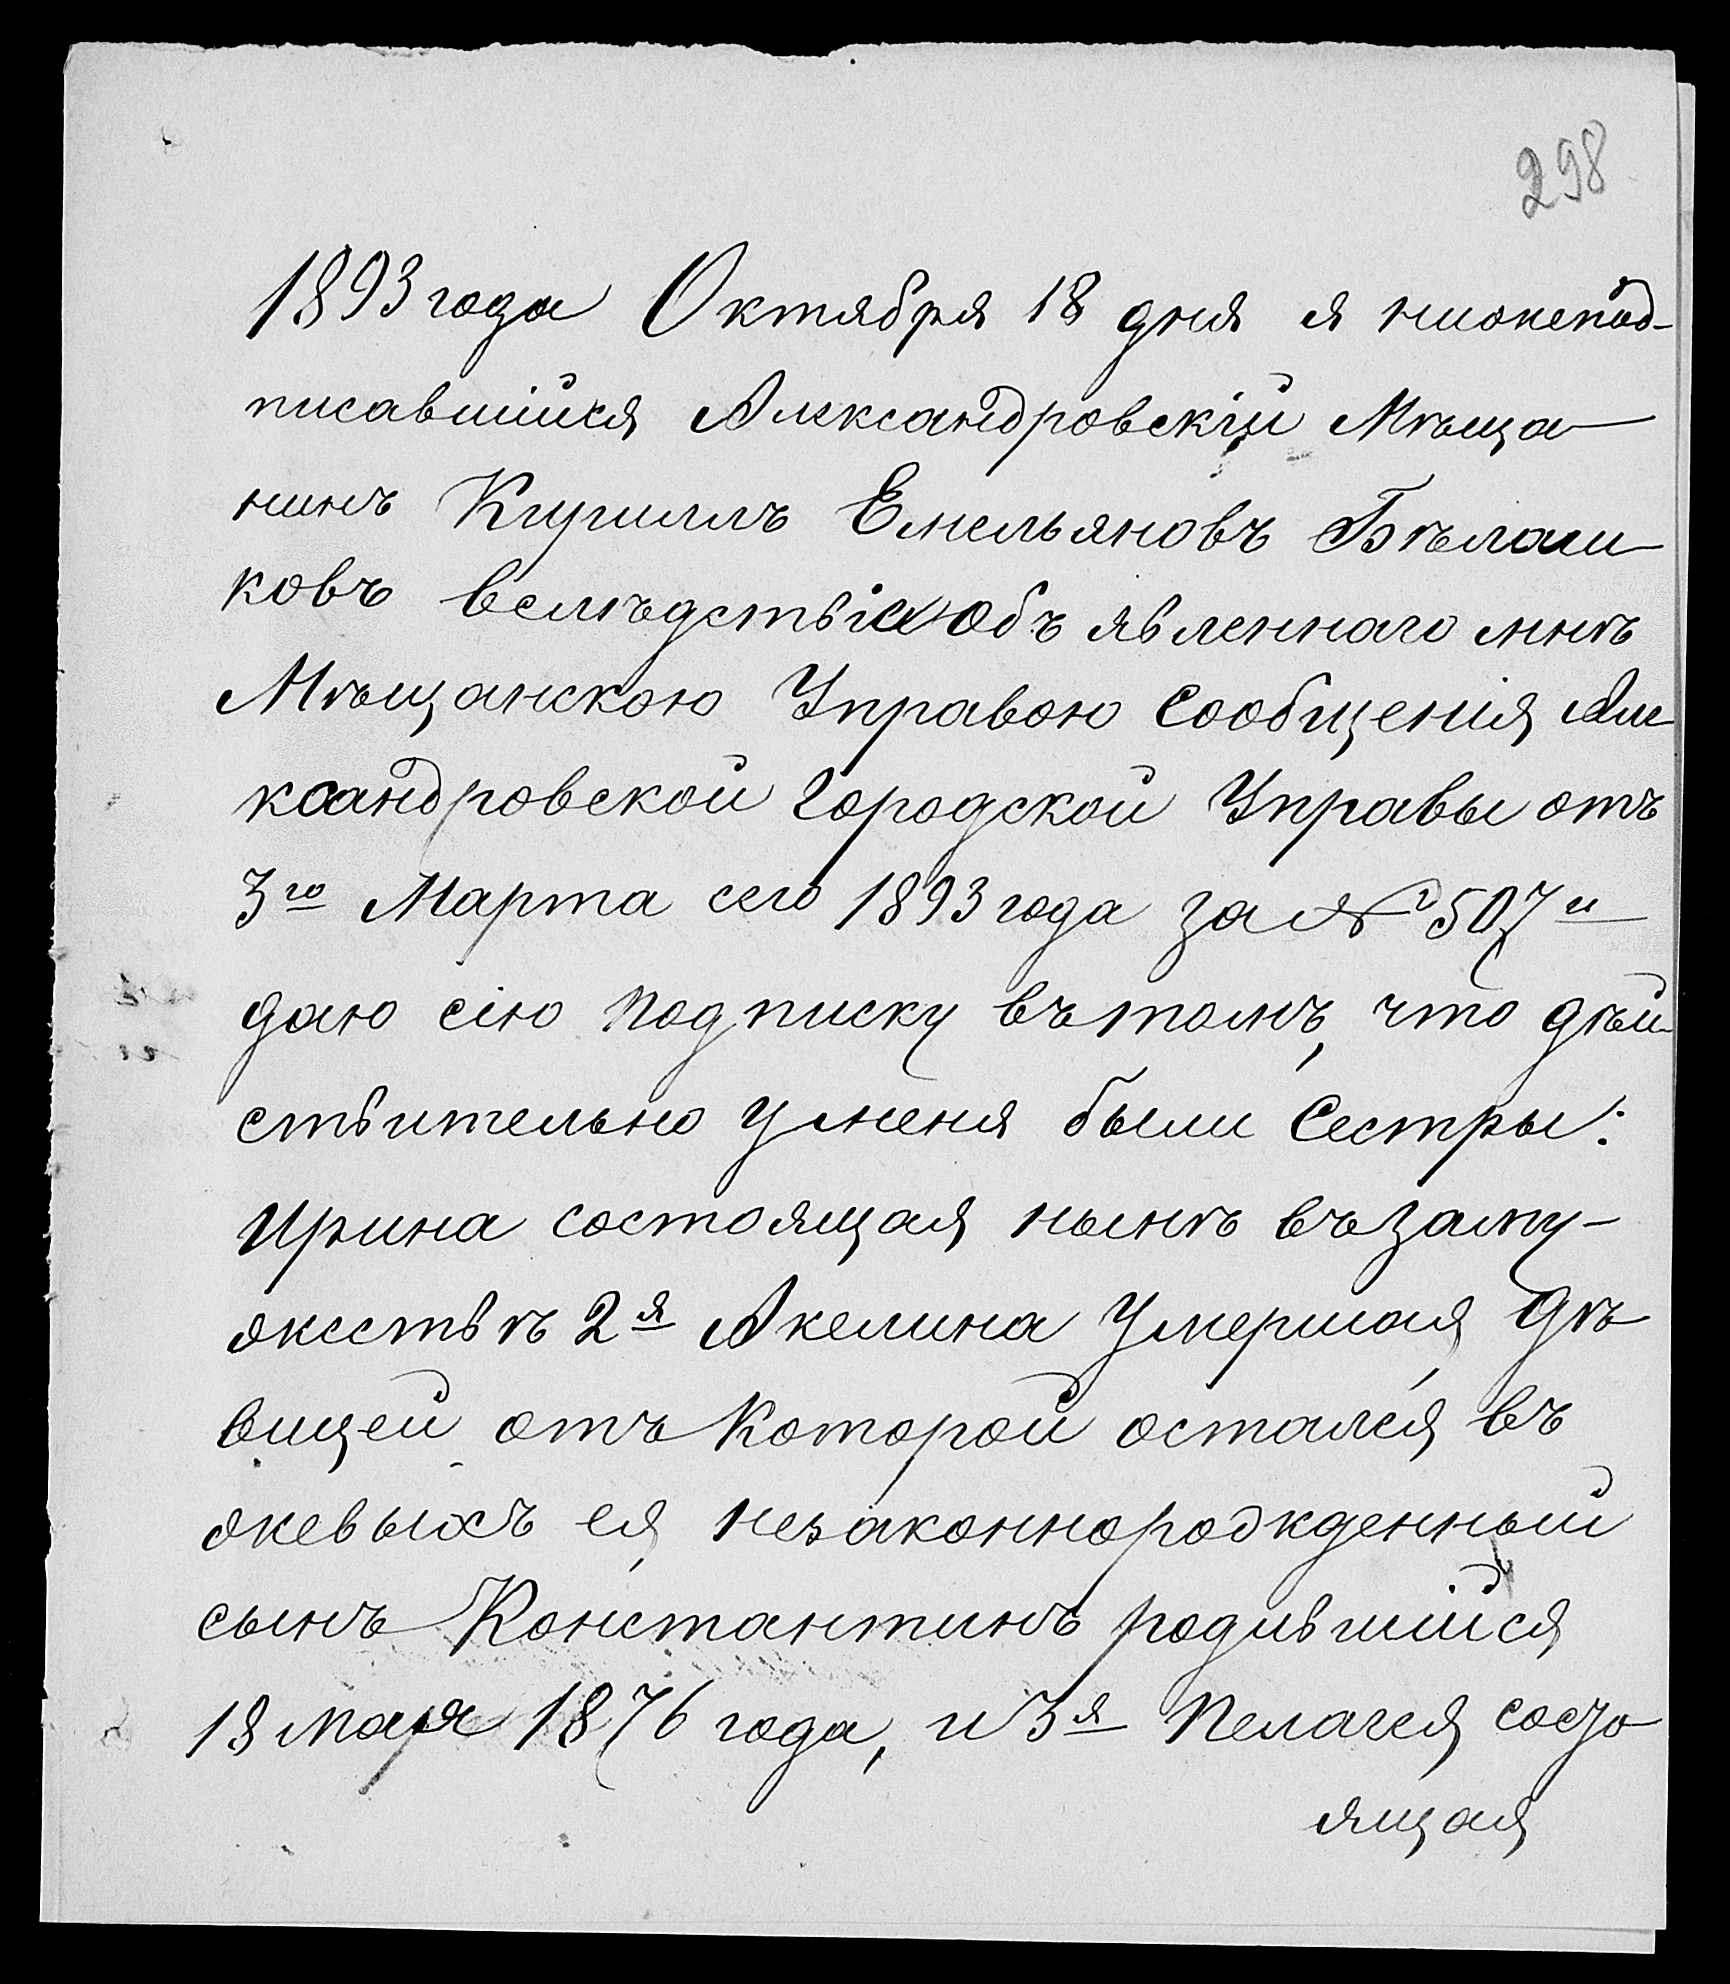 298
1893 года Октября 18 дня я нижепод-
писавшійся Александровскій Мѣща-
нинъ Кириллъ Емельяновъ Бѣлаш-
ковъ вслѣдствіе объявленнаго мнѣ
Мѣщанскою Управою Сообщенія Але-
ксандровской Городской Управы отъ
3го Марта сего 1893 года за № 507 и
даю сію подписку въ томъ, что дѣй-
ствительно у меня были Сестры:
Ирина состоящая нынѣ въ заму-
жествѣ 2я Акелина Умершая дѣ-
вицей отъ Которой остался въ
живыхъ ея незаконнорожденный
сынъ Константинъ родившійся
18 мая 1876 года, и 3я Пелагея состо-
ящая